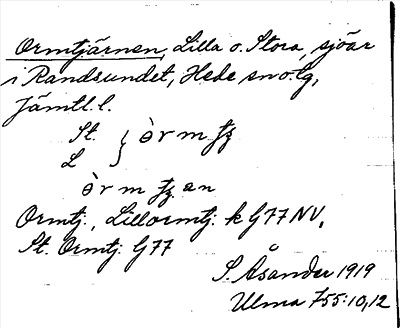 Ormtjärnen, Lilla o. Stora, sjöar
i Randsundet, Hede sn o. tg,
Jämtl. l.
St. } òrm
L
òrm an
Ormtj., Lillormtj. k G77 NV,
St. Ormtj. G77
S. Åsander 1919
Ulma 755:10,12